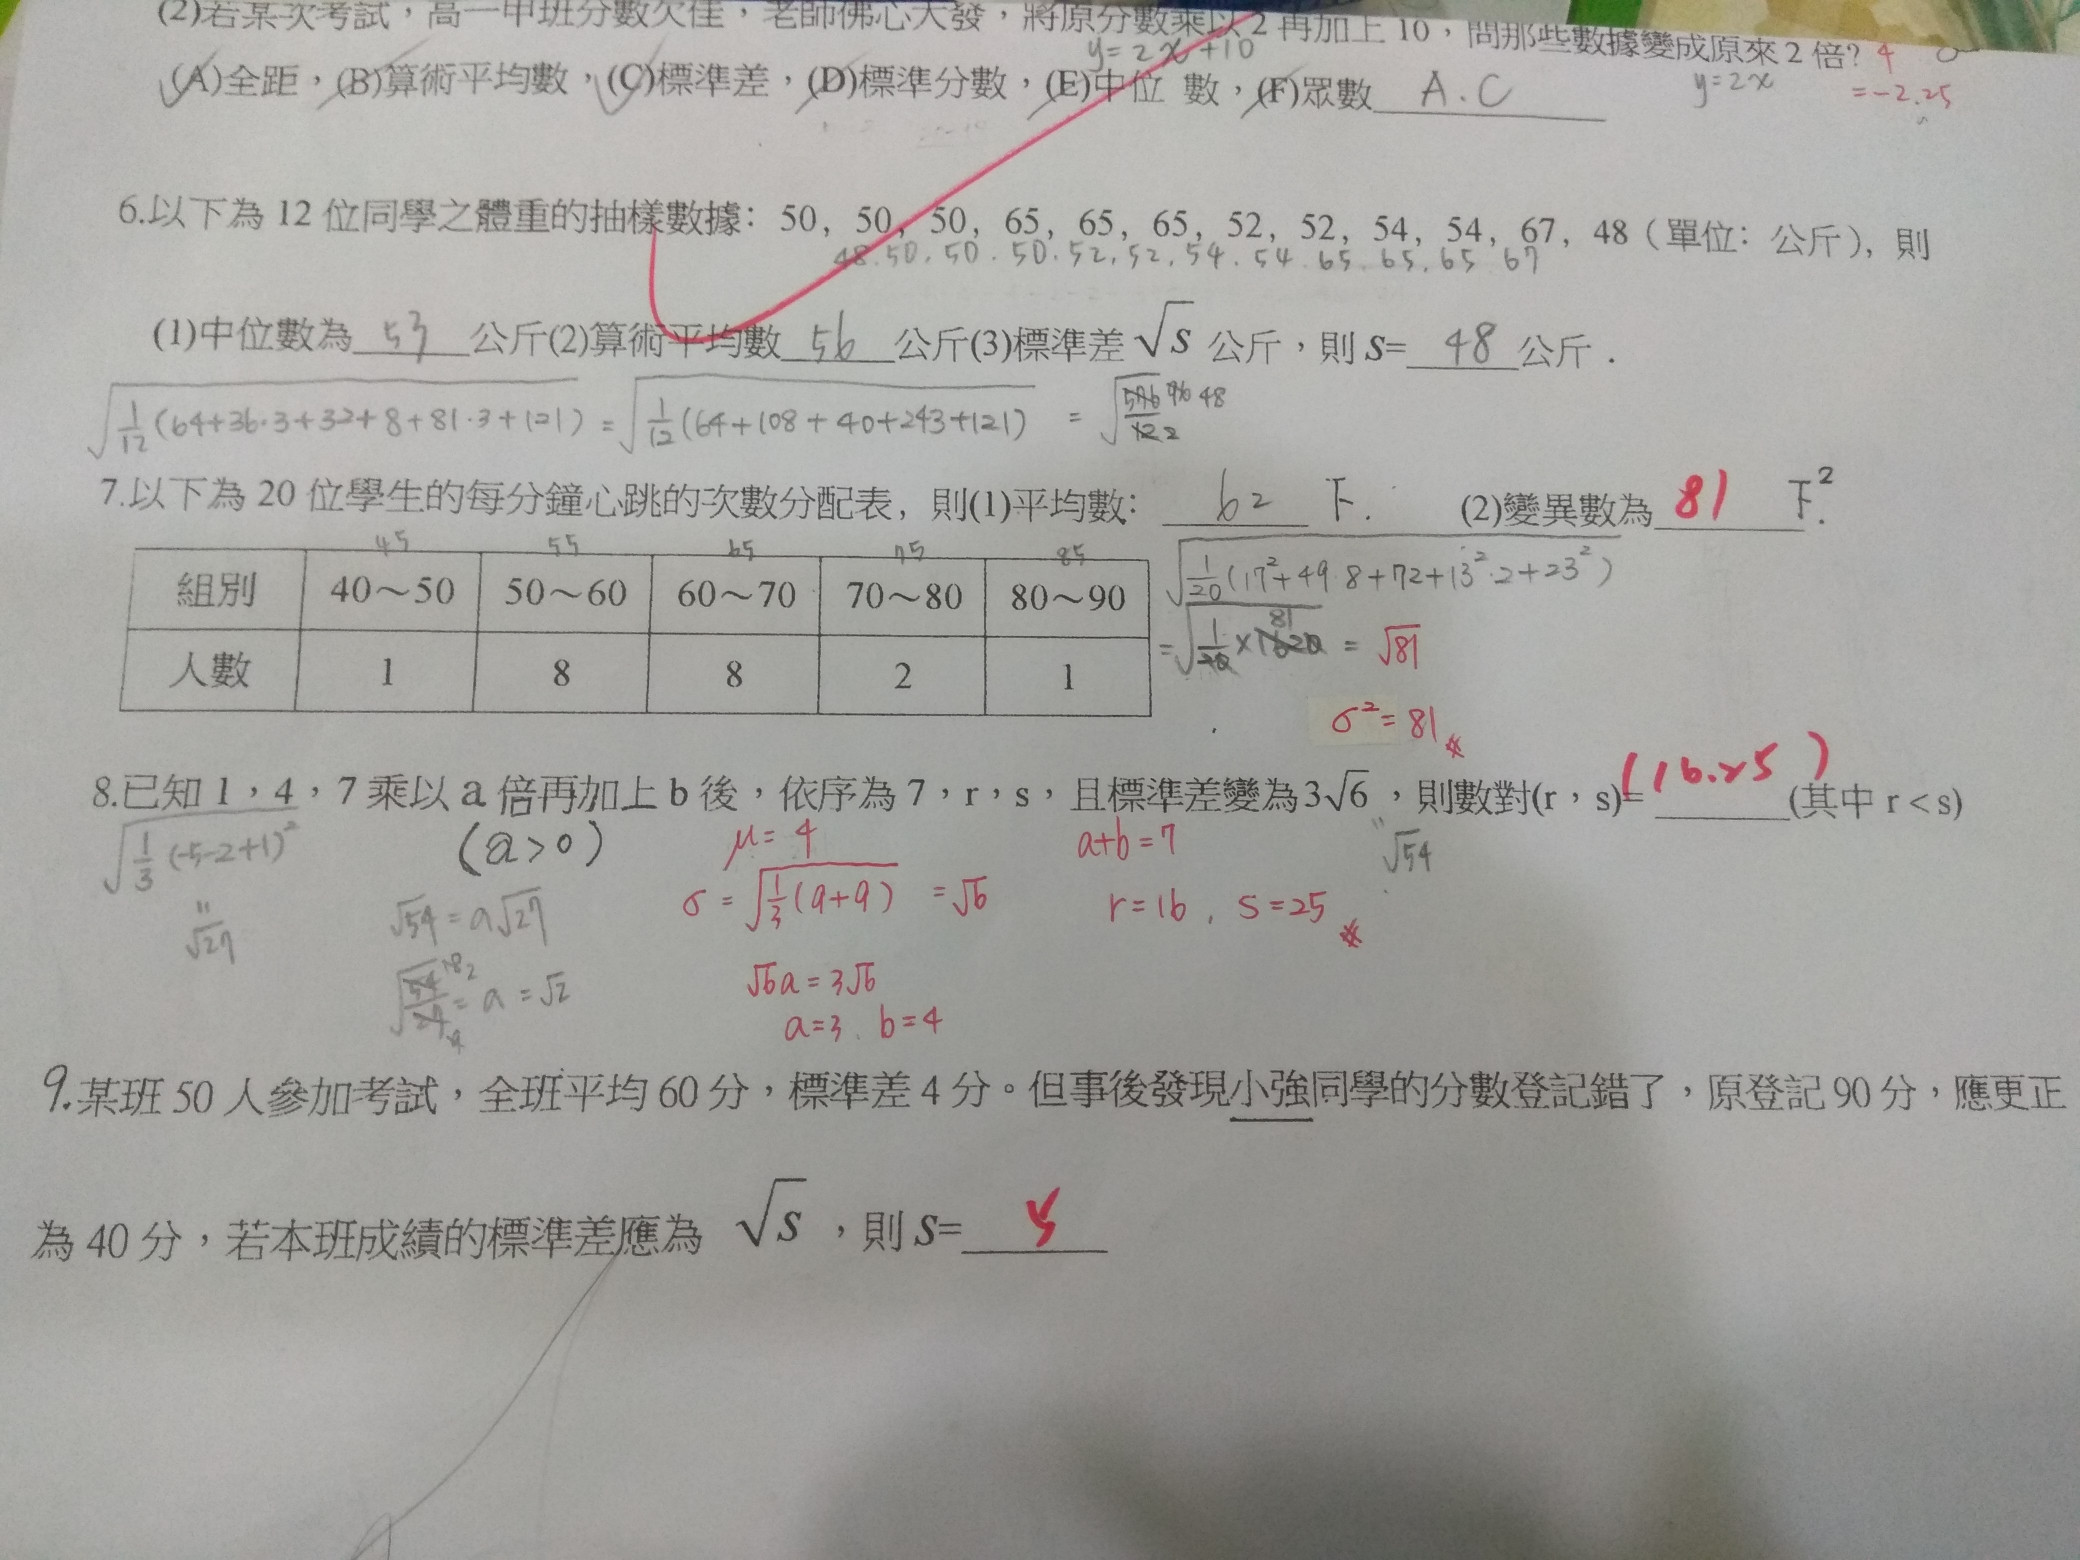 (2)若某次考試，高一甲班分數欠佳，老師佛心大發，將原分數乘以2再加上10，問那些數據變成原來2倍? 4
y=2x+10
y=2x
=-2.25
(A)全距，(B)算術平均數，(C)標準差，(D)標準分數，(E)中位 數，(F)眾數 A.C
6.以下為12位同學之體重的抽樣數據：50, 50, 50, 65, 65, 65, 52, 52, 54, 54, 67, 48（單位：公斤），則
48.50.50.50.52.52.54.54.65.65.65 67
(1)中位數為 53 公斤(2)算術平均數 56 公斤(3)標準差√s 公斤，則s= 48 公斤．
√(1/12(64+36·3+32+8+81·3+121)) = √(1/12(64+108+40+243+121)) = √(576/12) 96 48 2
7.以下為20位學生的每分鐘心跳的次數分配表，則(1)平均數： 62 下. (2)變異數為 81 下².
45 55 65 75 85
組別 40～50 50～60 60～70 70～80 80～90
人數 1 8 8 2 1
√(1/20(17²+49·8+72+13²·2+23²))
=√(1/20×1620) 81 = √81
σ²=81
8.已知1，4，7乘以a倍再加上b後，依序為7，r，s，且標準差變為3√6，則數對(r，s)= (16.25) (其中r<s)
√(1/3(-5-2+1)²) (a>0) μ=4 a+b=7 " √54
" √27 √54=a√27 σ=√(1/3(9+9)) =√6 r=16, s=25
a=√2 √6a=3√6
a=3. b=4
9.某班50人參加考試，全班平均60分，標準差4分。但事後發現小強同學的分數登記錯了，原登記90分，應更正
為40分，若本班成績的標準差應為 √s ，則s= 5